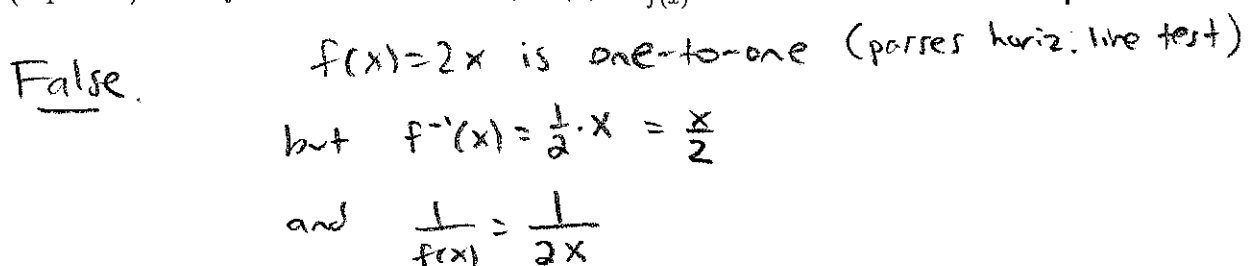 f(x)=2x is one-to-one (passes horiz. line test)
False.
but f⁻¹(x) = 1/2 · x = x/2
and 1/f(x) = 1/2x